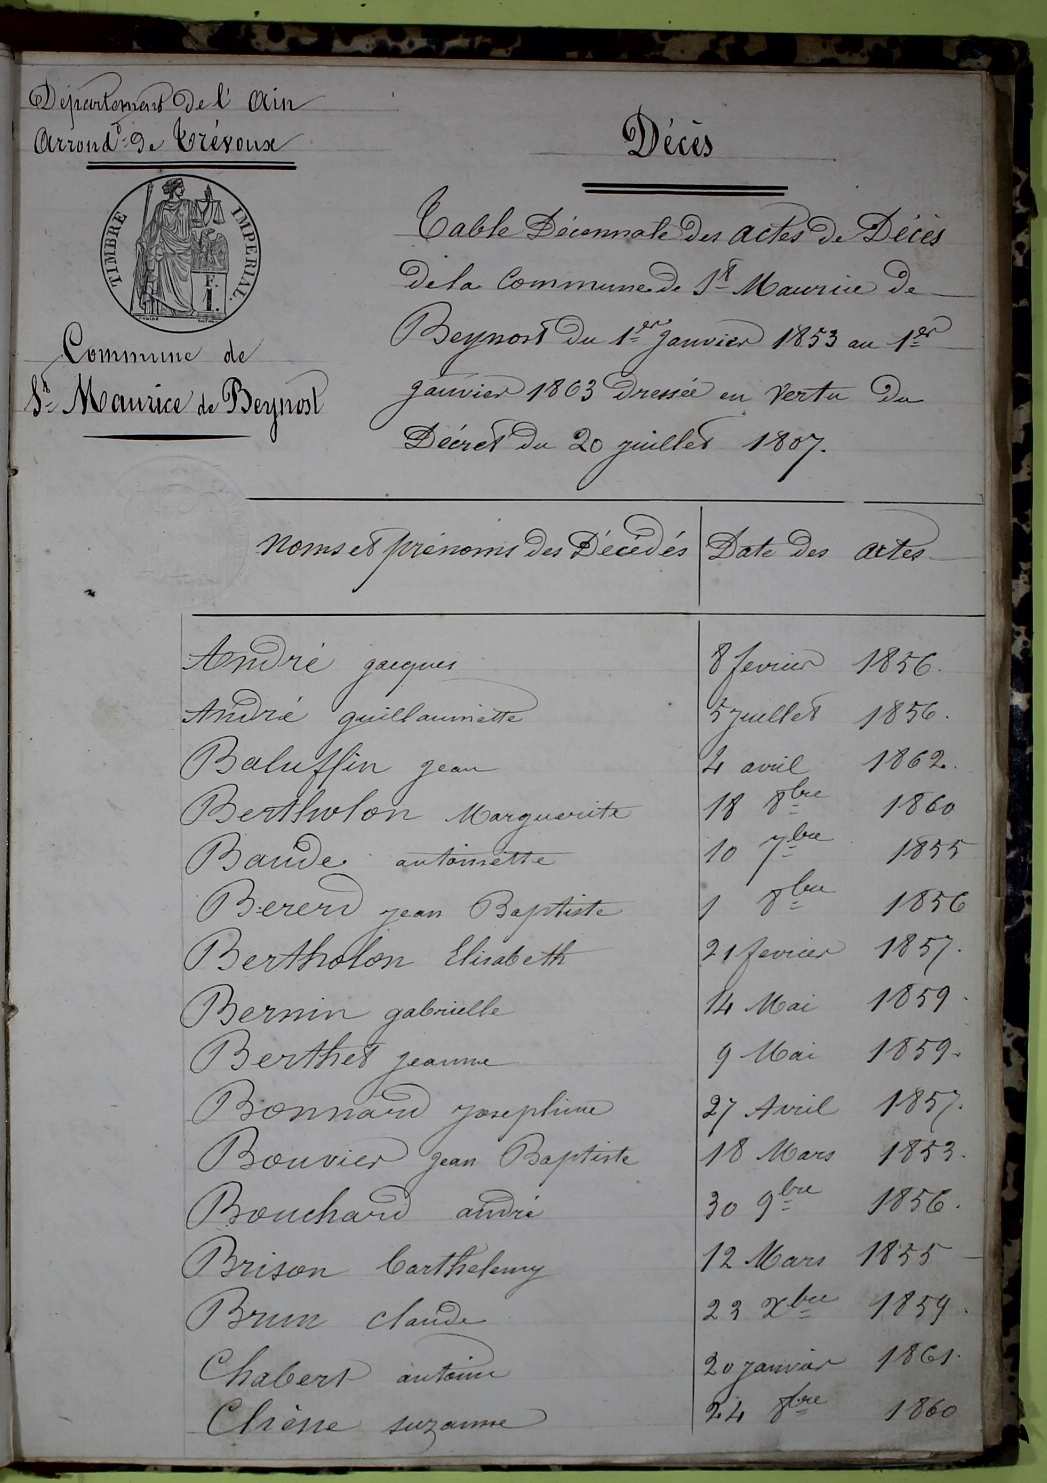 Département de l'Ain
Arrond.t de Trévoux
TIMBRE IMPERIAL.
F. 1.
Commune de
St Maurice de Beynost
Décès
Table Décennale des actes de Décès
de la Commune de St Maurice de
Beynost du 1er Janvier 1853 au 1er
janvier 1863 dressée en vertu du
Décret du 20 juillet 1807.
Noms et prénoms des Décédés Date des actes
André jacques 8 fevrier 1856.
André guillaumette 5 juillet 1856.
Baluffin jean 4 avril 1862.
Bertholon Marguerite 18 8bre 1860
Baude antoinette 10 7bre 1855
Bererd jean Baptiste 1 8bre 1856
Bertholon Elisabeth 21 fevrier 1857.
Bernin gabrielle 14 Mai 1859.
Berthet jeanne 9 Mai 1859.
Bonnard josephine 27 Avril 1857.
Bouvier jean Baptiste 18 Mars 1853.
Bouchard andré 30 9bre 1856.
Brison barthelemy 12 Mars 1855
Brun claude 23 Xbre 1859.
Chabert antoine 20 janvier 1861.
Chêne suzanne 24 8bre 1860